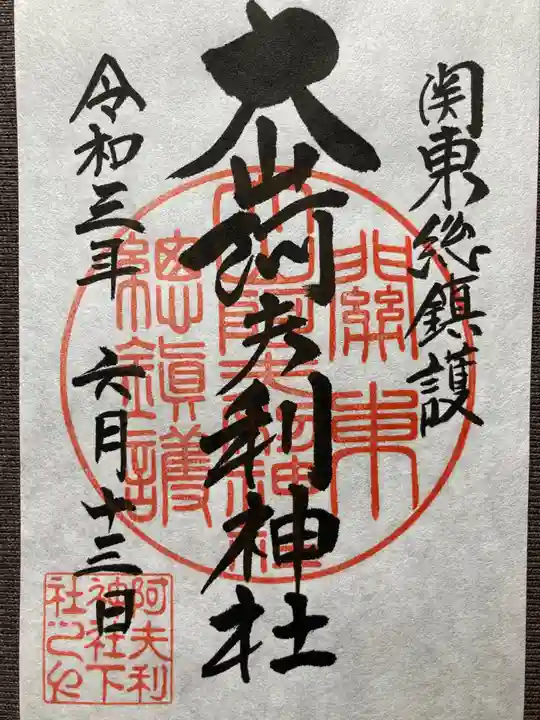 関東総鎮護
大山阿夫利神社
令和三年 六月十三日
關東
大山阿夫利神社
總鎮護
阿夫利
神社下
社之印